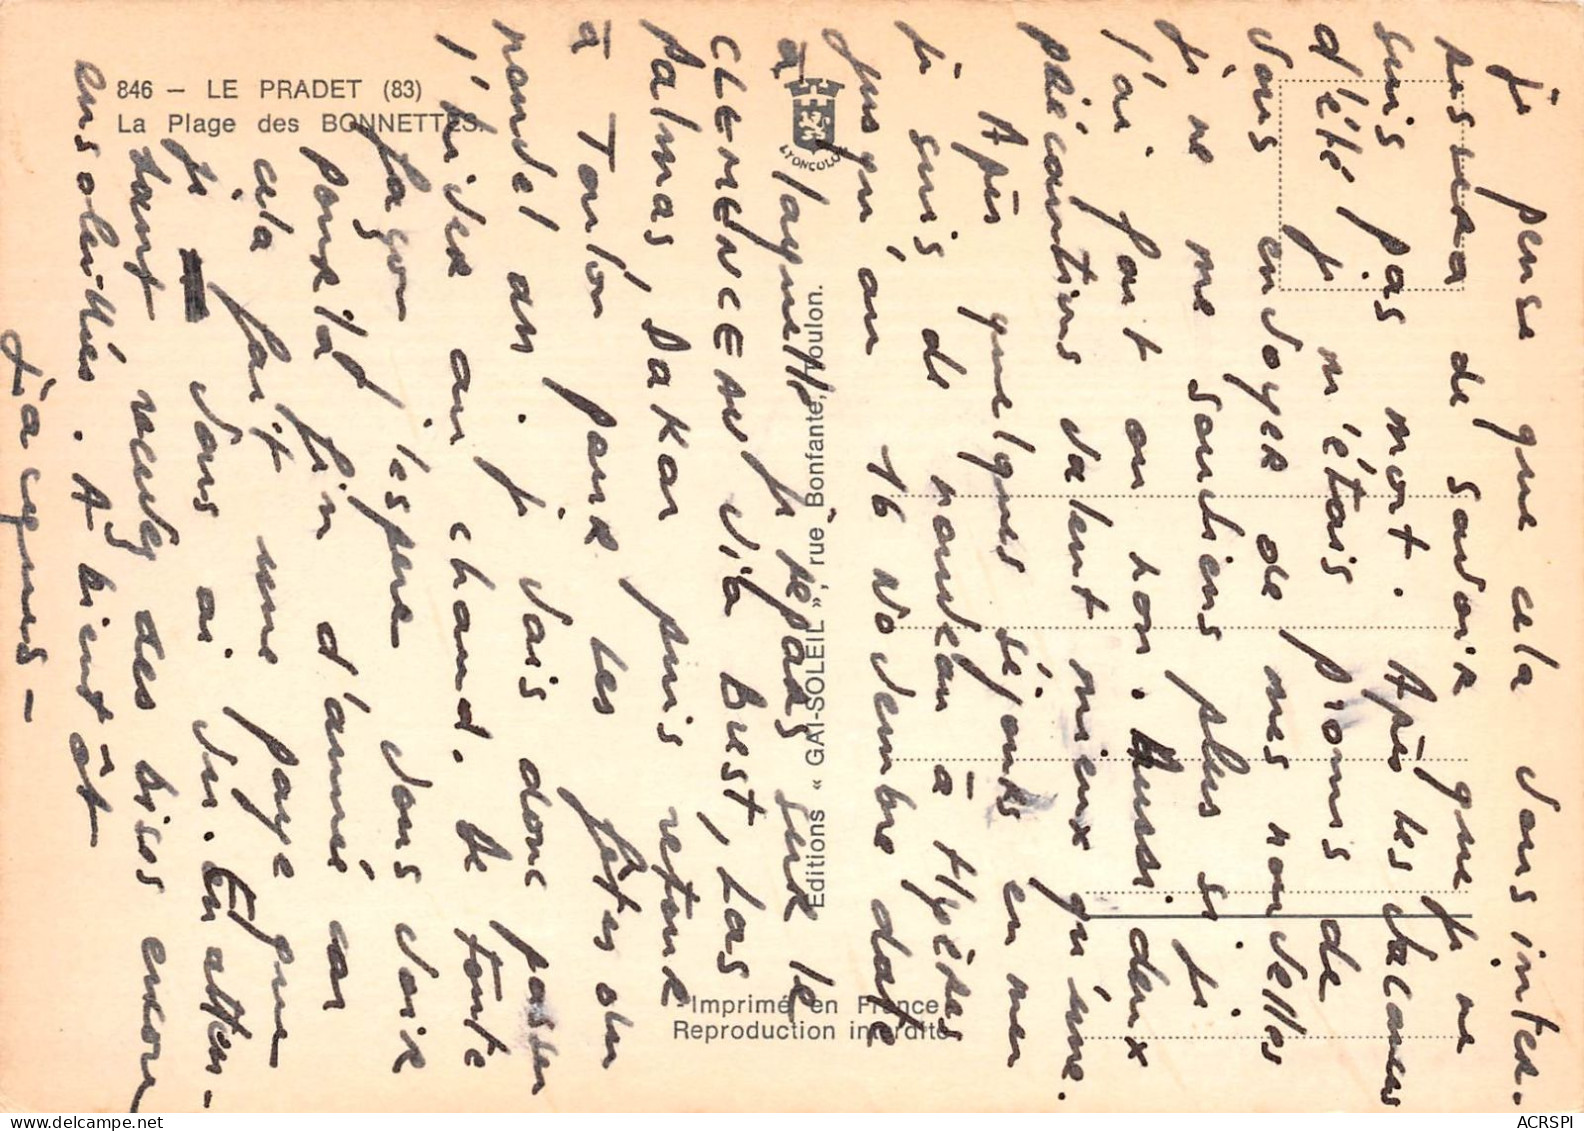 846 — LE PRADET (83)
La Plage des BONNETTES.
LYONCOLOR
Editions « GAI-SOLEIL », rue Bonfante, Toulon.
Imprimé en France
Reproduction interdite
Je pense que cela vous inter-
ressera de savoir que je ne
suis pas mort. Après les vacances
d'été je m'étais promis de
vous envoyer de mes nouvelles
je ne me souviens plus si je
l'ai fait ou non. Aussi deux
précautions valent mieux qu'une.
Après quelques séjours en mer
je suis de nouveau à Hyères
jusqu'au 16 Novembre date
à laquelle je repars sur le
CLEMENCEAU via Brest, Las
Palmas, Dakar puis retour
à Toulon pour les fêtes du
nouvel an. Je vais donc passer
l'hiver au chaud. De toute
façon j'espère vous voir
pour la fin d'année car
cela fait une paye que
je vous ai vu. En atten-
dant recevez des bises encore
ensoleillées. A bientôt
Jacques -
ACRSPI